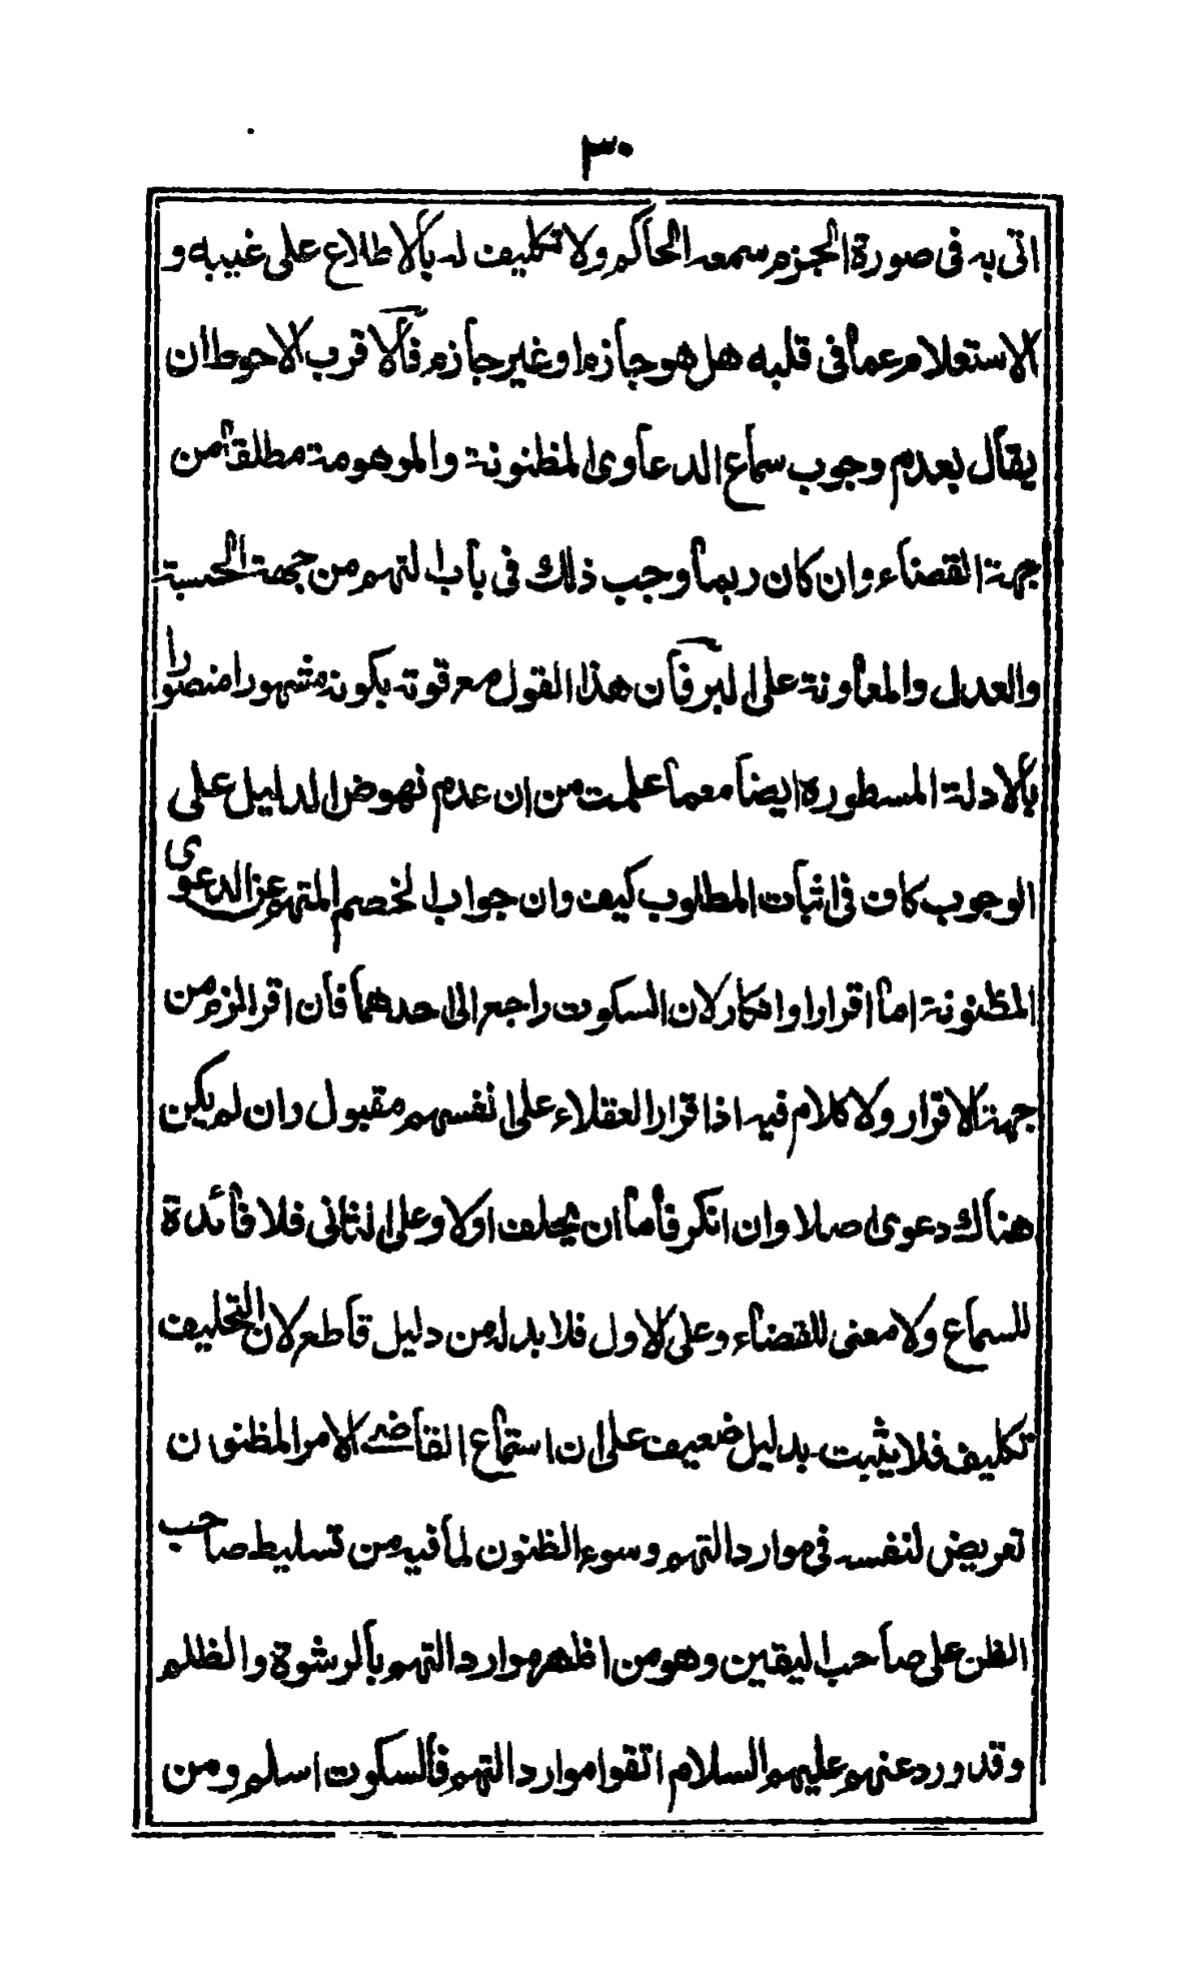 ٣٠
اتى به فى صورة الجزم سمعه الحاكم ولا تكليف له بالاطلاع على غيبه و
الاستعلام عما فى قلبه هل هو جازم او غير جازم فالاقرب الاحوط ان
يقال بعدم وجوب سماع الدعاوى المظنونة والموهومة مطلقا من
جهة القضاء وان كان ربما وجب ذلك فى باب التهم من جهة الحسبة
والعدل والمعاونة على البر فان هذا القول مع قوته بكونه مشهورا منصورا
بالادلة المسطورة ايضا معما علمت من ان عدم نهوض الدليل على
الوجوب كاف فى اثبات المطلوب كيف وان جواب الخصم المتهم عن الدعوى
المظنونة اما اقرارا وانكار لان السكوت راجع الى احدهما فان اقر الزم من
جهة الاقرار ولا كلام فيه اذ اقرار العقلاء على انفسهم مقبول وان لم يكن
هناك دعوى اصلا وان انكر فاما ان يحلف اولا وعلى الثانى فلا فائدة
للسماع ولا معنى للقضاء وعلى الاول فلا بد له من دليل قاطع لان التحليف
تكليف فلا يثبت بدليل ضعيف على ان استماع القاضى الامر المظنون
تعريض لنفسه فى موارد التهم وسوء الظنون لما فيه من تسليط صاحب
الظن على صاحب اليقين وهو من اظهر موارد التهم بالرشوة والظلم
وقد ورد عنهم عليهم السلام اتقوا موارد التهم فالسكوت اسلم ومن